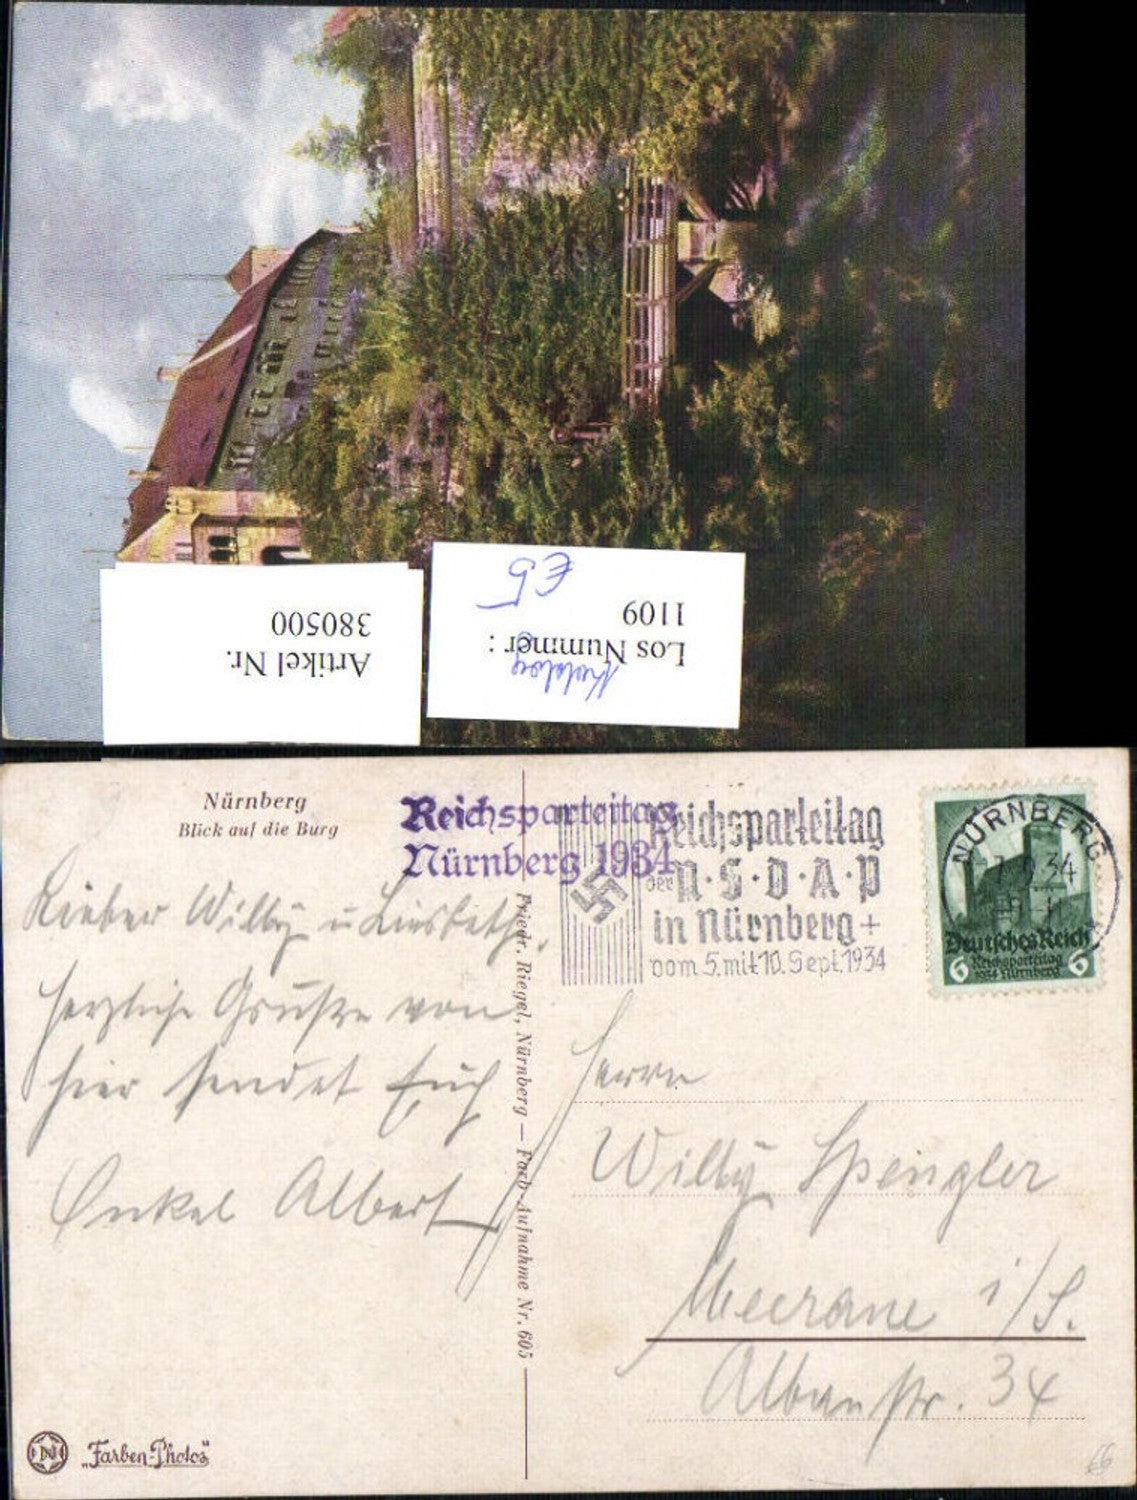 Artikel Nr.
380500
Los Nummer :
1109
€5
Nürnberg
Blick auf die Burg
Reichsparteitag
Nürnberg 1934
Reichsparteitag
der N·S·D·A·P
in Nürnberg +
vom 5. mit 10. Sept. 1934
NÜRNBERG
Deutsches Reich
6 Reichsparteitag 6
1934 Nürnberg
Lieber Willy u Liesbeth,
herzliche Grüße von
hier sendet Euch
Onkel Albert
Friedr. Riegel, Nürnberg — Farb-Aufnahme Nr. 605
Herrn
Willy Spengler
Meerane i/S.
Albanstr. 34
„Farben-Photos"
66